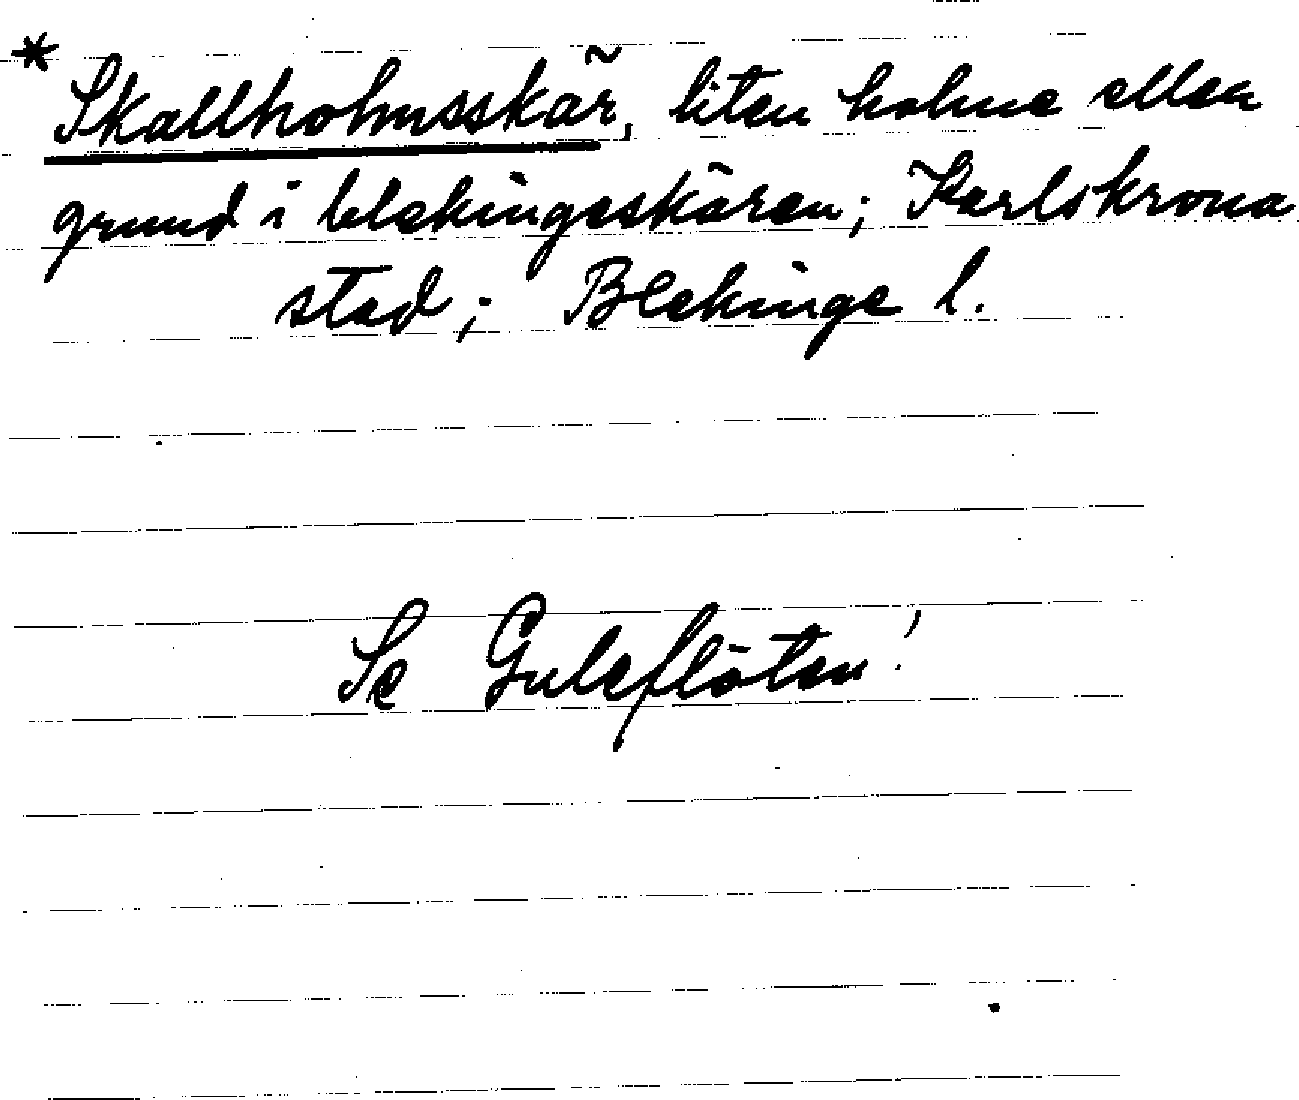 * Skallholmsskär, liten holme eller
grund i blekingeskären; Karlskrona
stad; Blekinge l.
Se Guleflöten!